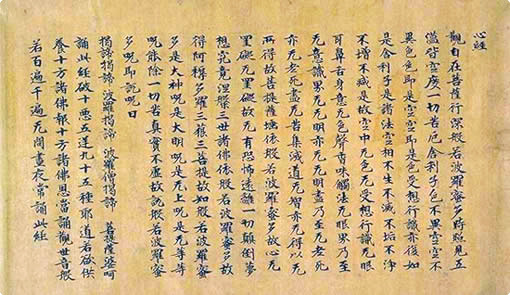 心經
觀自在菩薩行深般若波羅蜜多時照見五
蘊皆空度一切苦厄舍利子色不異空空不
異色色即是空空即是色受想行識亦復如
是舍利子是諸法空相不生不滅不垢不淨
不增不減是故空中无色无受想行識无眼
耳鼻舌身意无色聲香味觸法无眼界乃至
无意識界无无明亦无无明盡乃至无老死
亦无老死盡无苦集滅道无智亦无得以无
所得故菩提薩埵依般若波羅蜜多故心无
罣礙无罣礙故无有恐怖遠離一切顛倒夢
想究竟涅槃三世諸佛依般若波羅蜜多故
得阿耨多羅三藐三菩提故知般若波羅蜜
多是大神呪是大明呪是无上呪是无等等
呪能除一切苦真實不虛故說般若波羅蜜
多呪即說呪曰
揭諦揭諦 波羅揭諦 波羅僧揭諦 菩提婆呵
誦此經破十惡五逆九十五種耶道若欲供
養十方諸佛報十方諸佛恩當誦觀世音般
若百遍千遍无間晝夜常誦此經